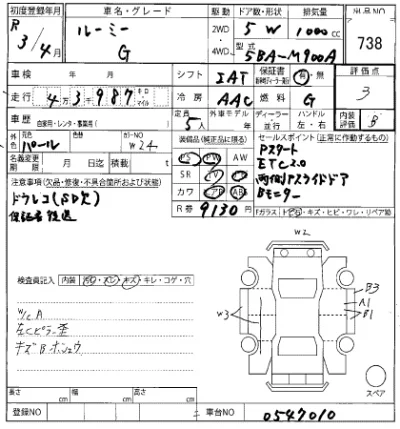 初度登録年月
R 3/4月
車名・グレード
ルーミー
G
2WD 4WD
ドア数・形状
5 W
排気量
1000 cc
型式
5BA-M900A
出品NO
738
車検 年 月
シフト IAT
保証書 有・無
評価点
3
走行 4万3千987 キロ・マイル
冷房 AAC
燃料 G
車歴 自家用・レンタ・事業用( )
定員 5人
外車モデル
ディーラー 並行
ハンドル 左・右
内装評価 B
外色 元色 パール
カラーNO W24
装備品(純正品に限る)
セールスポイント(正常に作動するもの)
名義変更期限 月 日迄
積載 t
PS PW AW
Pスタート
ETC2.0
注意事項(欠品・修復・不具合箇所および状態)
SR TV
両側Pスライドドア
ドラレコ(SD欠)
カワ AB
Bモニター
保証書 後送
R券 9130円
Fガラス トビ石・キズ・ヒビ・ワレ・リペア跡
W2
検査員記入
内装 汚レ・スレ・キズ・キレ・コゲ・穴
B3
A1
B1
W3
W/C A
左Cピラー歪
キズBホシュウ
スペア
長さ cm
幅 cm
高さ cm
登録NO
車台NO 0547010